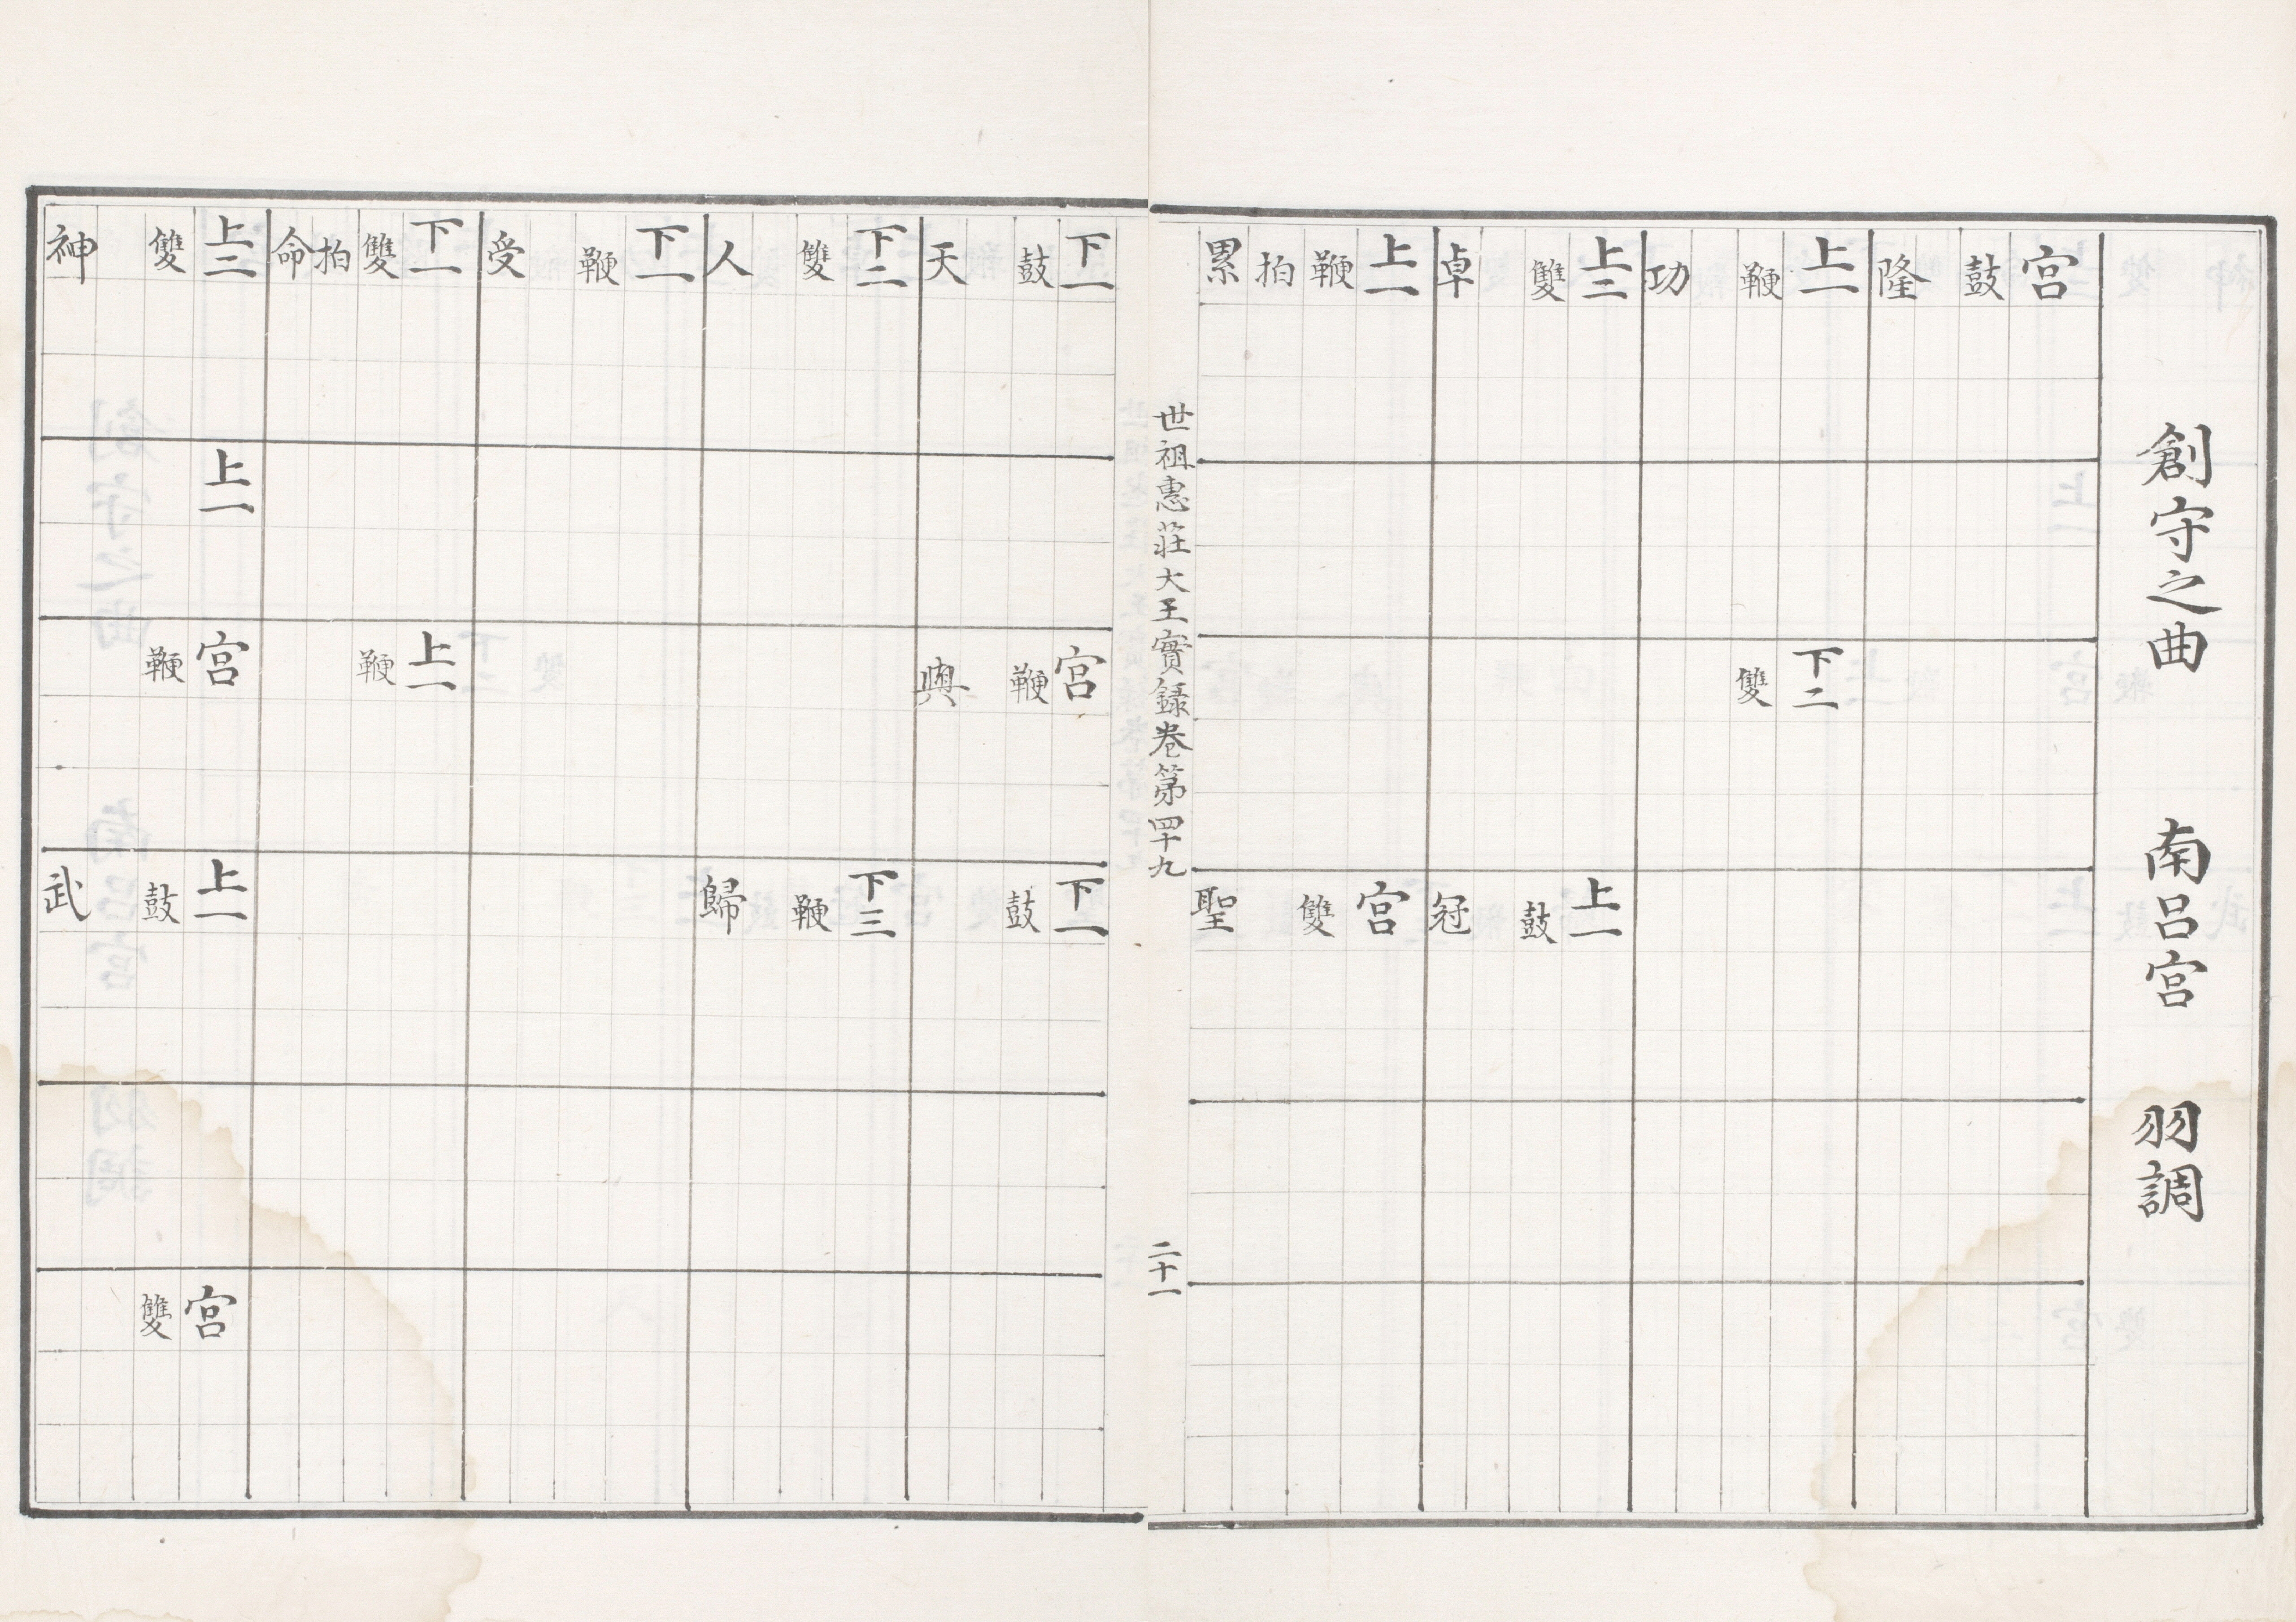 創守之曲 南呂宮 羽調
宮
鼓
隆
上一 下二
鞭 雙
功
上二 上一
雙 鼓
卓 冠
上一 宮
鞭 雙
拍
累 聖
世祖惠莊大王實録卷第四十九 二十一
下一 宮 下一
鼓 鞭 鼓
天 與
下二 下三
雙 鞭
人 歸
下一
鞭
受
下一 上一
雙 鞭
拍
命
上二 上一 宮 上一 宮
雙 鞭 鼓 雙
神 武